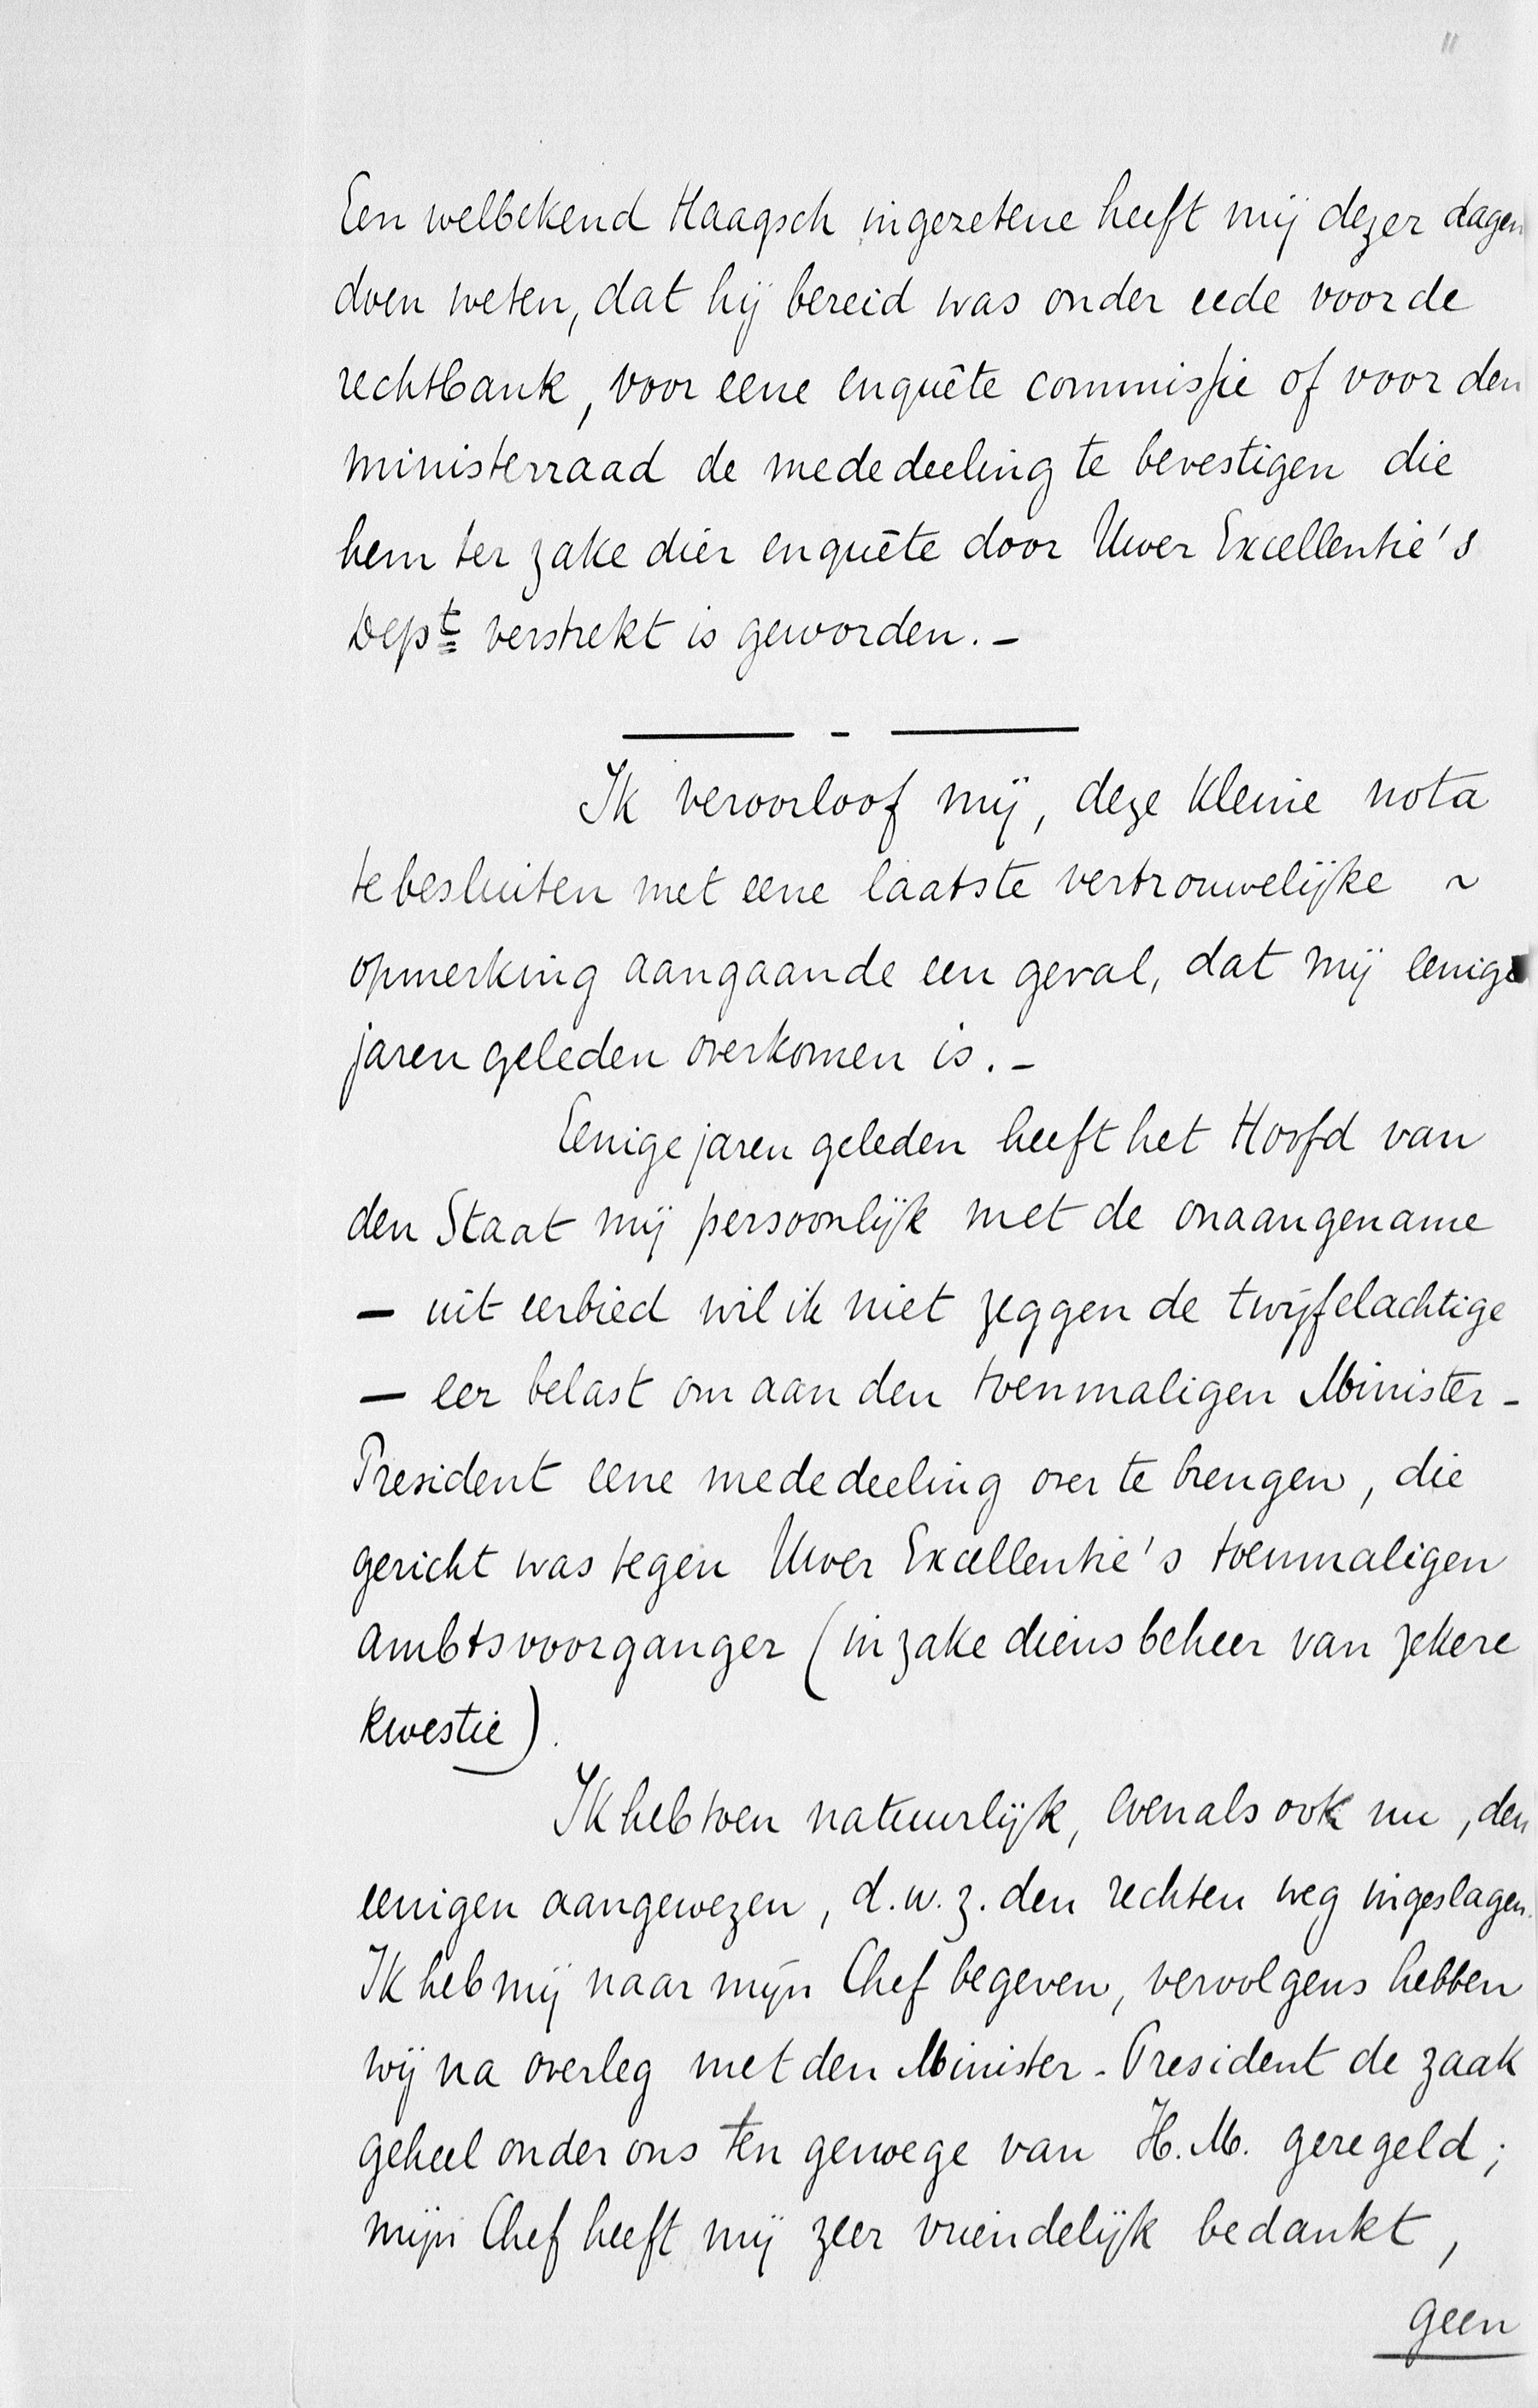 11
Een welbekend Haagsch ingezetene heeft mij dezer dagen
doen weten, dat hij bereid was onder eede voor de
rechtbank, voor eene enquête commissie of voor den
ministerraad de mededeeling te bevestigen die
hem ter zake dier enquête door Uwer Excellentie's
Dept verstrekt is geworden. –
— - —
Ik veroorloof mij, deze kleine nota
te besluiten met eene laatste vertrouwelijke ~
opmerking aangaande een geval, dat mij eenige
jaren geleden overkomen is. –
Eenige jaren geleden heeft het Hoofd van
den Staat mij persoonlijk met de onaangename
— uit eerbied wil ik niet zeggen de twijfelachtige
— eer belast om aan den toenmaligen Minister-
President eene mededeeling over te brengen, die
gericht was tegen Uwer Excellentie's toenmaligen
ambtsvoorganger (in zake diens beheer van zekere
kwestie).
Ik heb toen natuurlijk, evenals ook nu, den
eenigen aangewezen, d.w.z. den rechten weg ingeslagen.
Ik heb mij naar mijn Chef begeven, vervolgens hebben
wij na overleg met den Minister-President de zaak
geheel onder ons ten genoege van H.M. geregeld;
mijn Chef heeft mij zeer vriendelijk bedankt,
geen